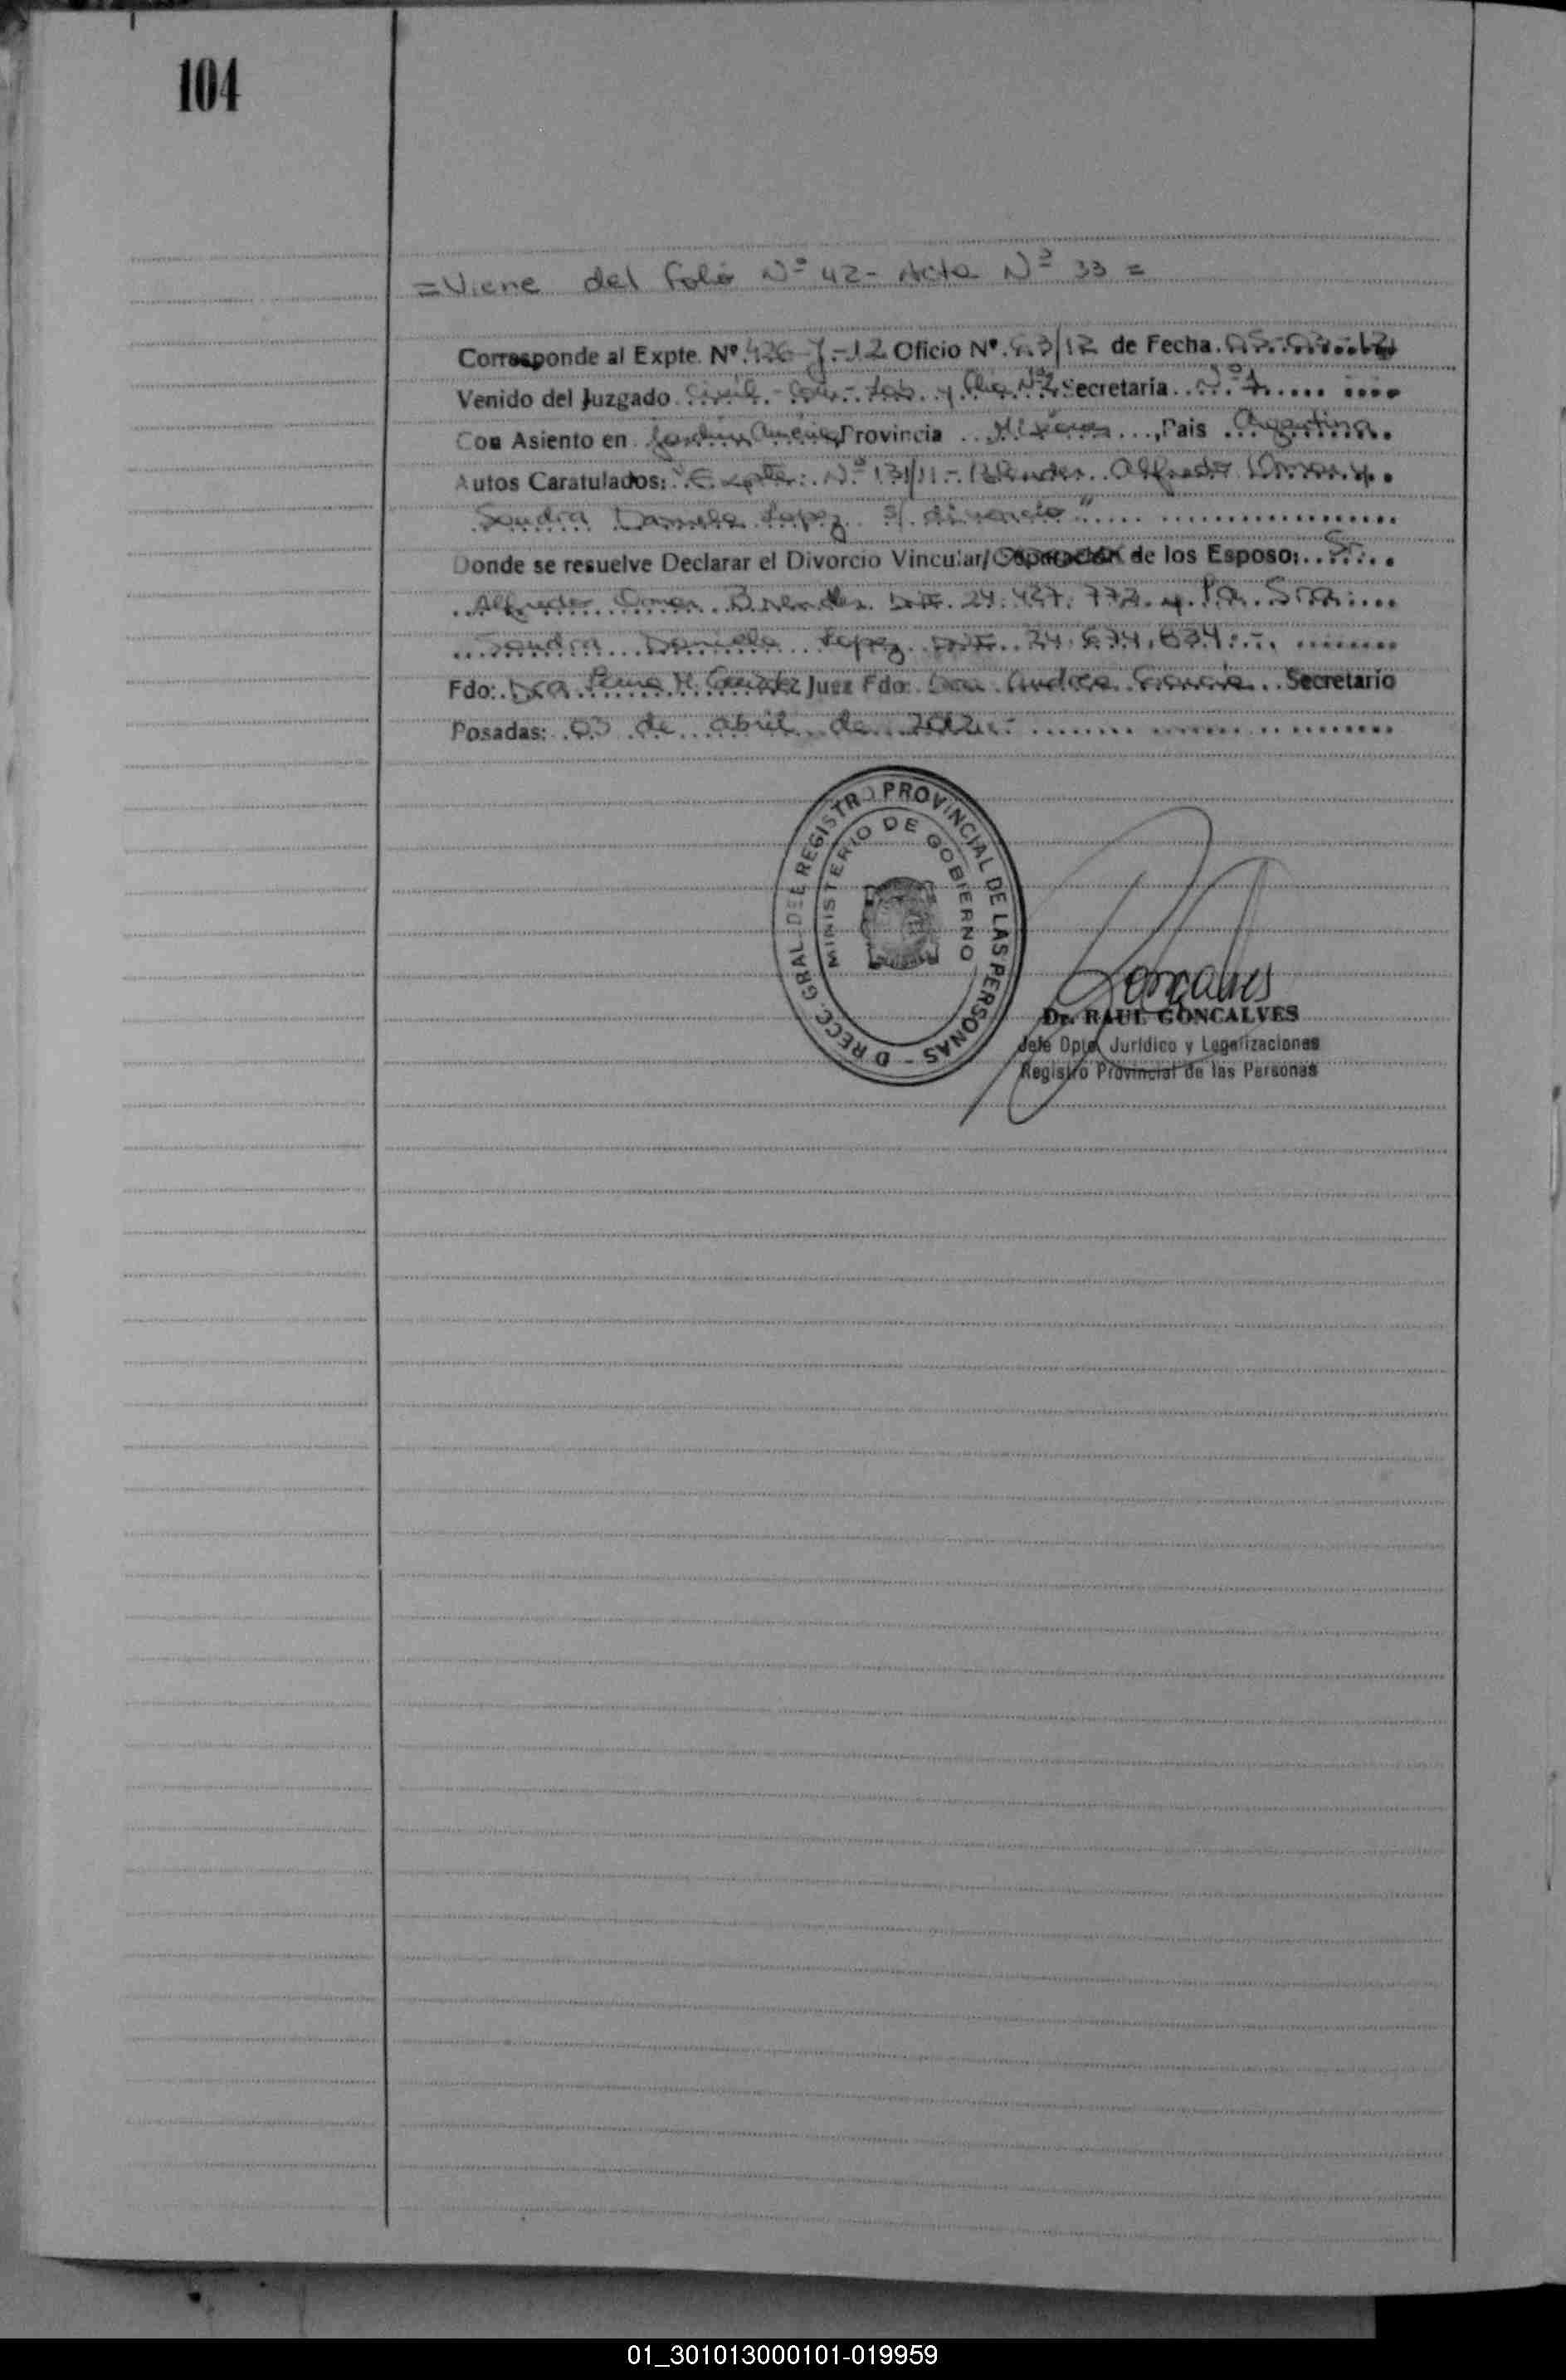 104
= Viene del folio Nº 42 - Acta Nº 33 =
Corresponde al Expte. Nº 426-J-12 Oficio Nº 63/12 de Fecha 05-03-12
Venido del Juzgado Civil - Com. - Lab. y Flia Nº 2 Secretaría Nº 1
Con Asiento en Jardín América Provincia Misiones, Pais Argentina.
Autos Caratulados: "Expte. Nº 131/11 - Alfredo Omar y
Sandra Daniela Lopez s/ divorcio"
Donde se resuelve Declarar el Divorcio Vincular/ de los Esposo: Sr.
Alfredo Omar DNI. 24.427.772 y la Sra:
Sandra Daniela Lopez DNI. 24.674.634.-
Fdo: Dra Juez Fdo: Dra Andrea Secretario
Posadas: 03 de abril de 2012.-
DIRECC. GRAL. DEL REGISTRO PROVINCIAL DE LAS PERSONAS -
MINISTERIO DE GOBIERNO
Goncalves
Dr. RAUL GONCALVES
Jefe Dpto. Jurídico y Legalizaciones
Registro Provincial de las Personas
01_301013000101-019959